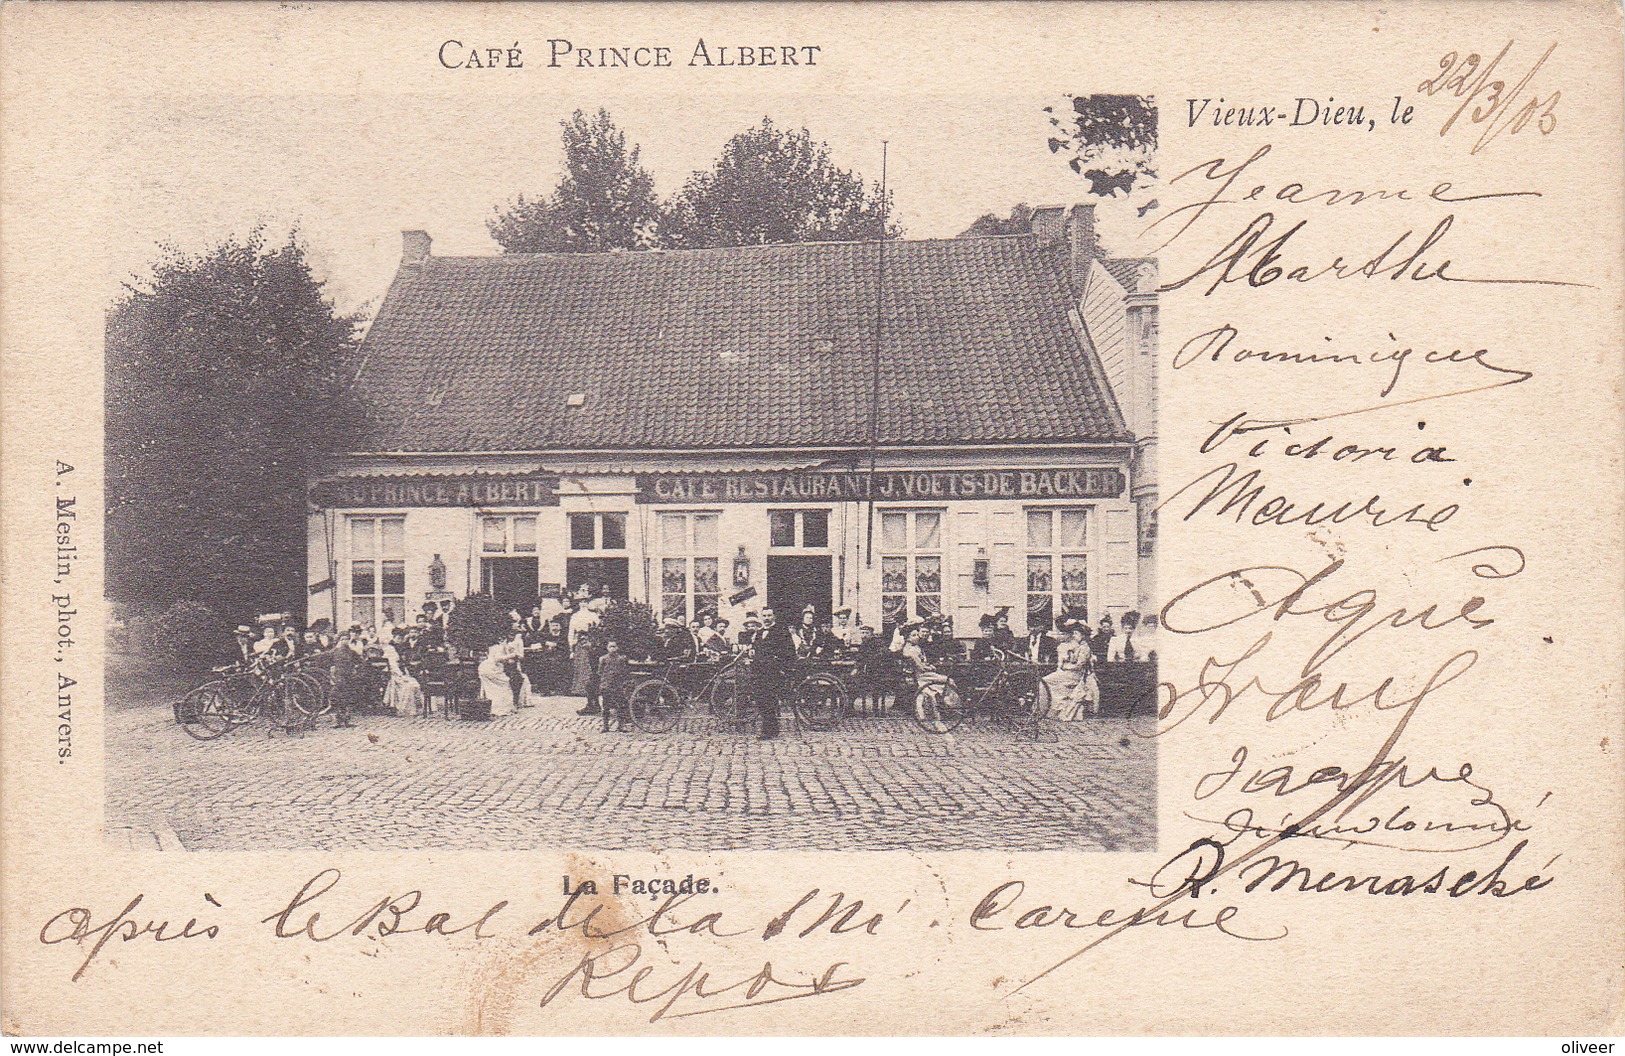 CAFÉ PRINCE ALBERT
Vieux-Dieu, le 22/3/03
Jeanne
Marthe
Dominique
Victoria
Maurice
Agnès.
Jacques
Dieudonné
R. Ménasché
AU PRINCE ALBERT
CAFE RESTAURANT J. VOETS-DE BACKER
A. Meslin, phot., Anvers.
La Façade.
après le Bal de la Mi. Careme
Repos
www.delcampe.net
oliveer